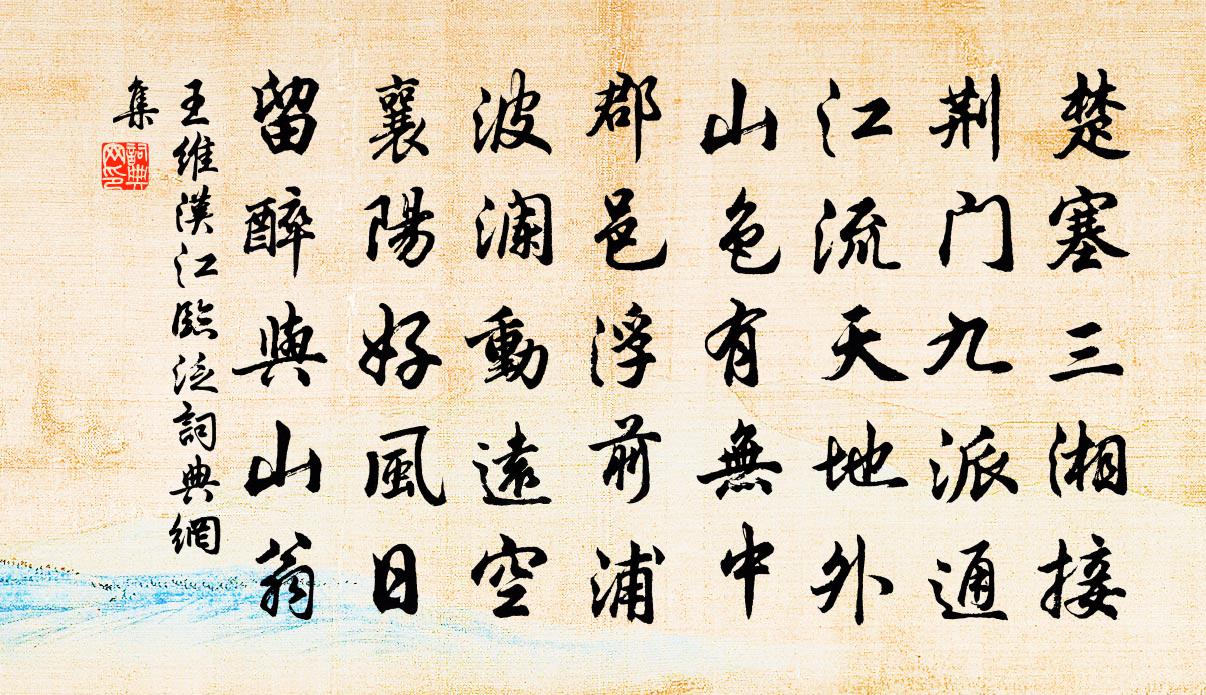 楚塞三湘接
荆门九派通
江流天地外
山色有無中
郡邑浮前浦
波澜動遠空
襄陽好風日
留醉與山翁
王維漢江臨泛詞典網
集
詞典
网印